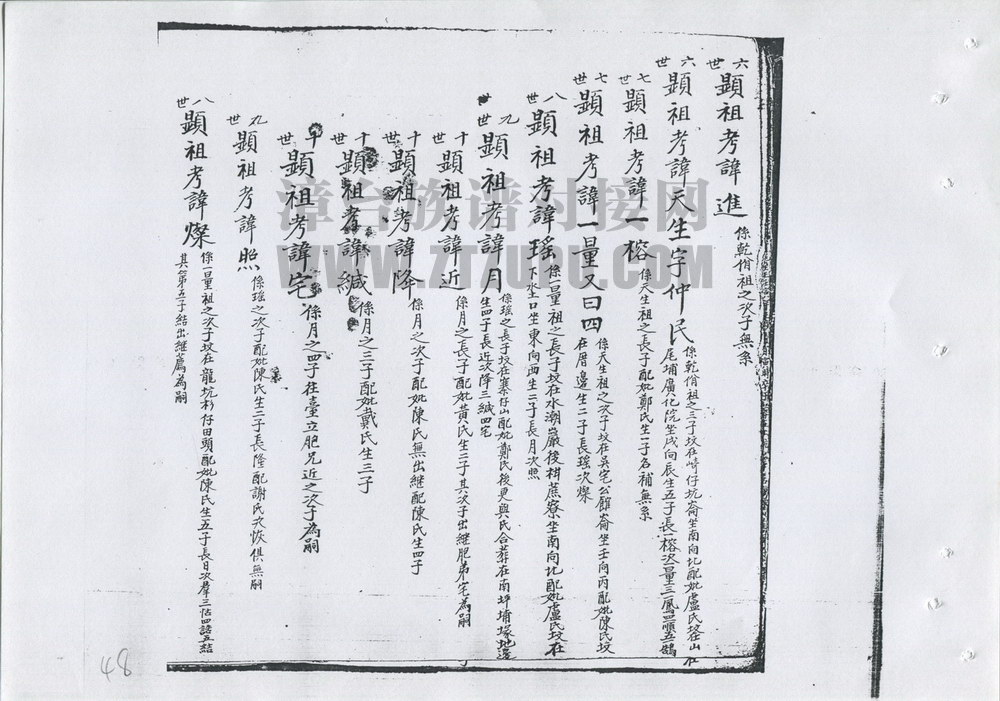 六世 顯祖考諱進 係乾俏祖之次子無系
六世 顯祖考諱天生字仲民 係乾俏祖之三子坟在崎仔坑崙坐南向北配妣盧氏坟在山在
尾埔廣化院坐戌向辰生五子長一榕次一量三一鳳四一順五一鵠
七世 顯祖考諱一榕 係天生祖之長子配妣鄭氏生一子名補無系
七世 顯祖考諱一量又曰四 係天生祖之次子坟在吳宅公館崙坐壬向丙配妣陳氏坟
在厝邊生二子長瑤次燦
八世 顯祖考諱瑤 係一量祖之長子坟在水潮巖後柑蔗寮坐南向北配妣盧氏坟在
下水土口坐東向西生二子長月次照
九世 顯祖考諱月 係瑤之長子坟在寨仔山配妣鄭氏後更與氏合葬在南坪埔塚地邊
生四子長近次降三緘四宅
十世 顯祖考諱近 係月之長子配妣黃氏生三子其次子出繼胞弟宅為嗣
十世 顯祖考諱降 係月之次子配妣陳氏無出繼配陳氏生四子
十世 顯祖考諱緘 係月之三子配妣戴氏生三子
十世 顯祖考諱宅 係月之四子在臺立胞兄近之次子為嗣
九世 顯祖考諱照 係瑤之次子配妣陳氏生二子長隆配謝氏次恢俱無嗣
八世 顯祖考諱燦 係一量祖之次子坟在龍坑杉仔田頭配妣陳氏生五子長日次羣三佔四語五結
其第五子結出繼薦為嗣
48
漳台族谱对接网
WWW.ZTZUPU.COM